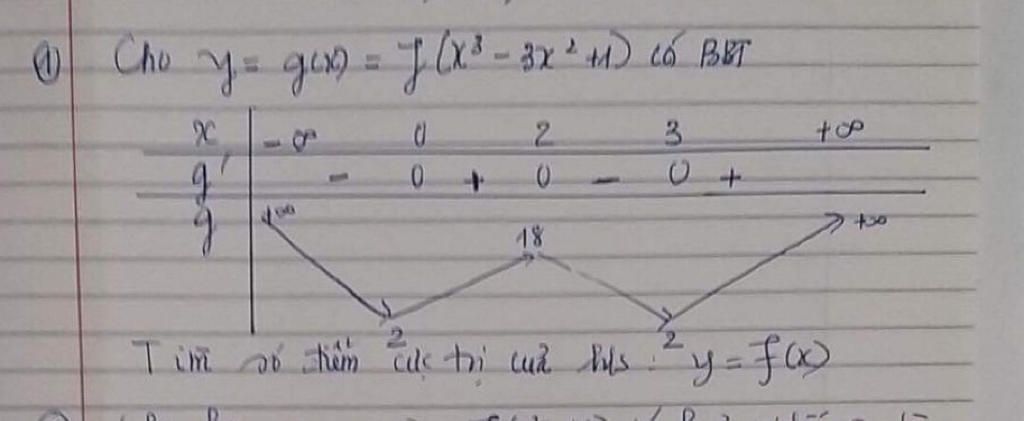 ① Cho y = g(x) = f(x³ - 3x² + 1) có BBT
x -∞ 0 2 3 +∞
g' - 0 + 0 - 0 +
g +∞ 2 18 2 +∞
Tìm số điểm cực trị của hs : y = f(x)